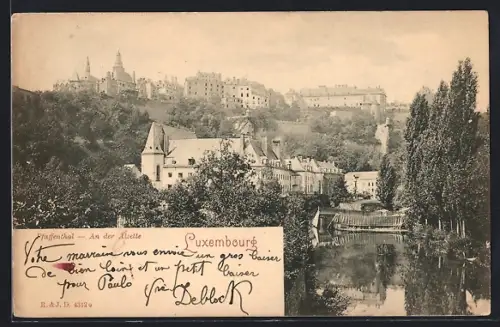 Pfaffenthal – An der Alzette
Luxembourg
Votre marraine vous envoie un gros baiser
de bien loin et un petit baiser
pour Paulo
Vve Deblock
R. & J. D.